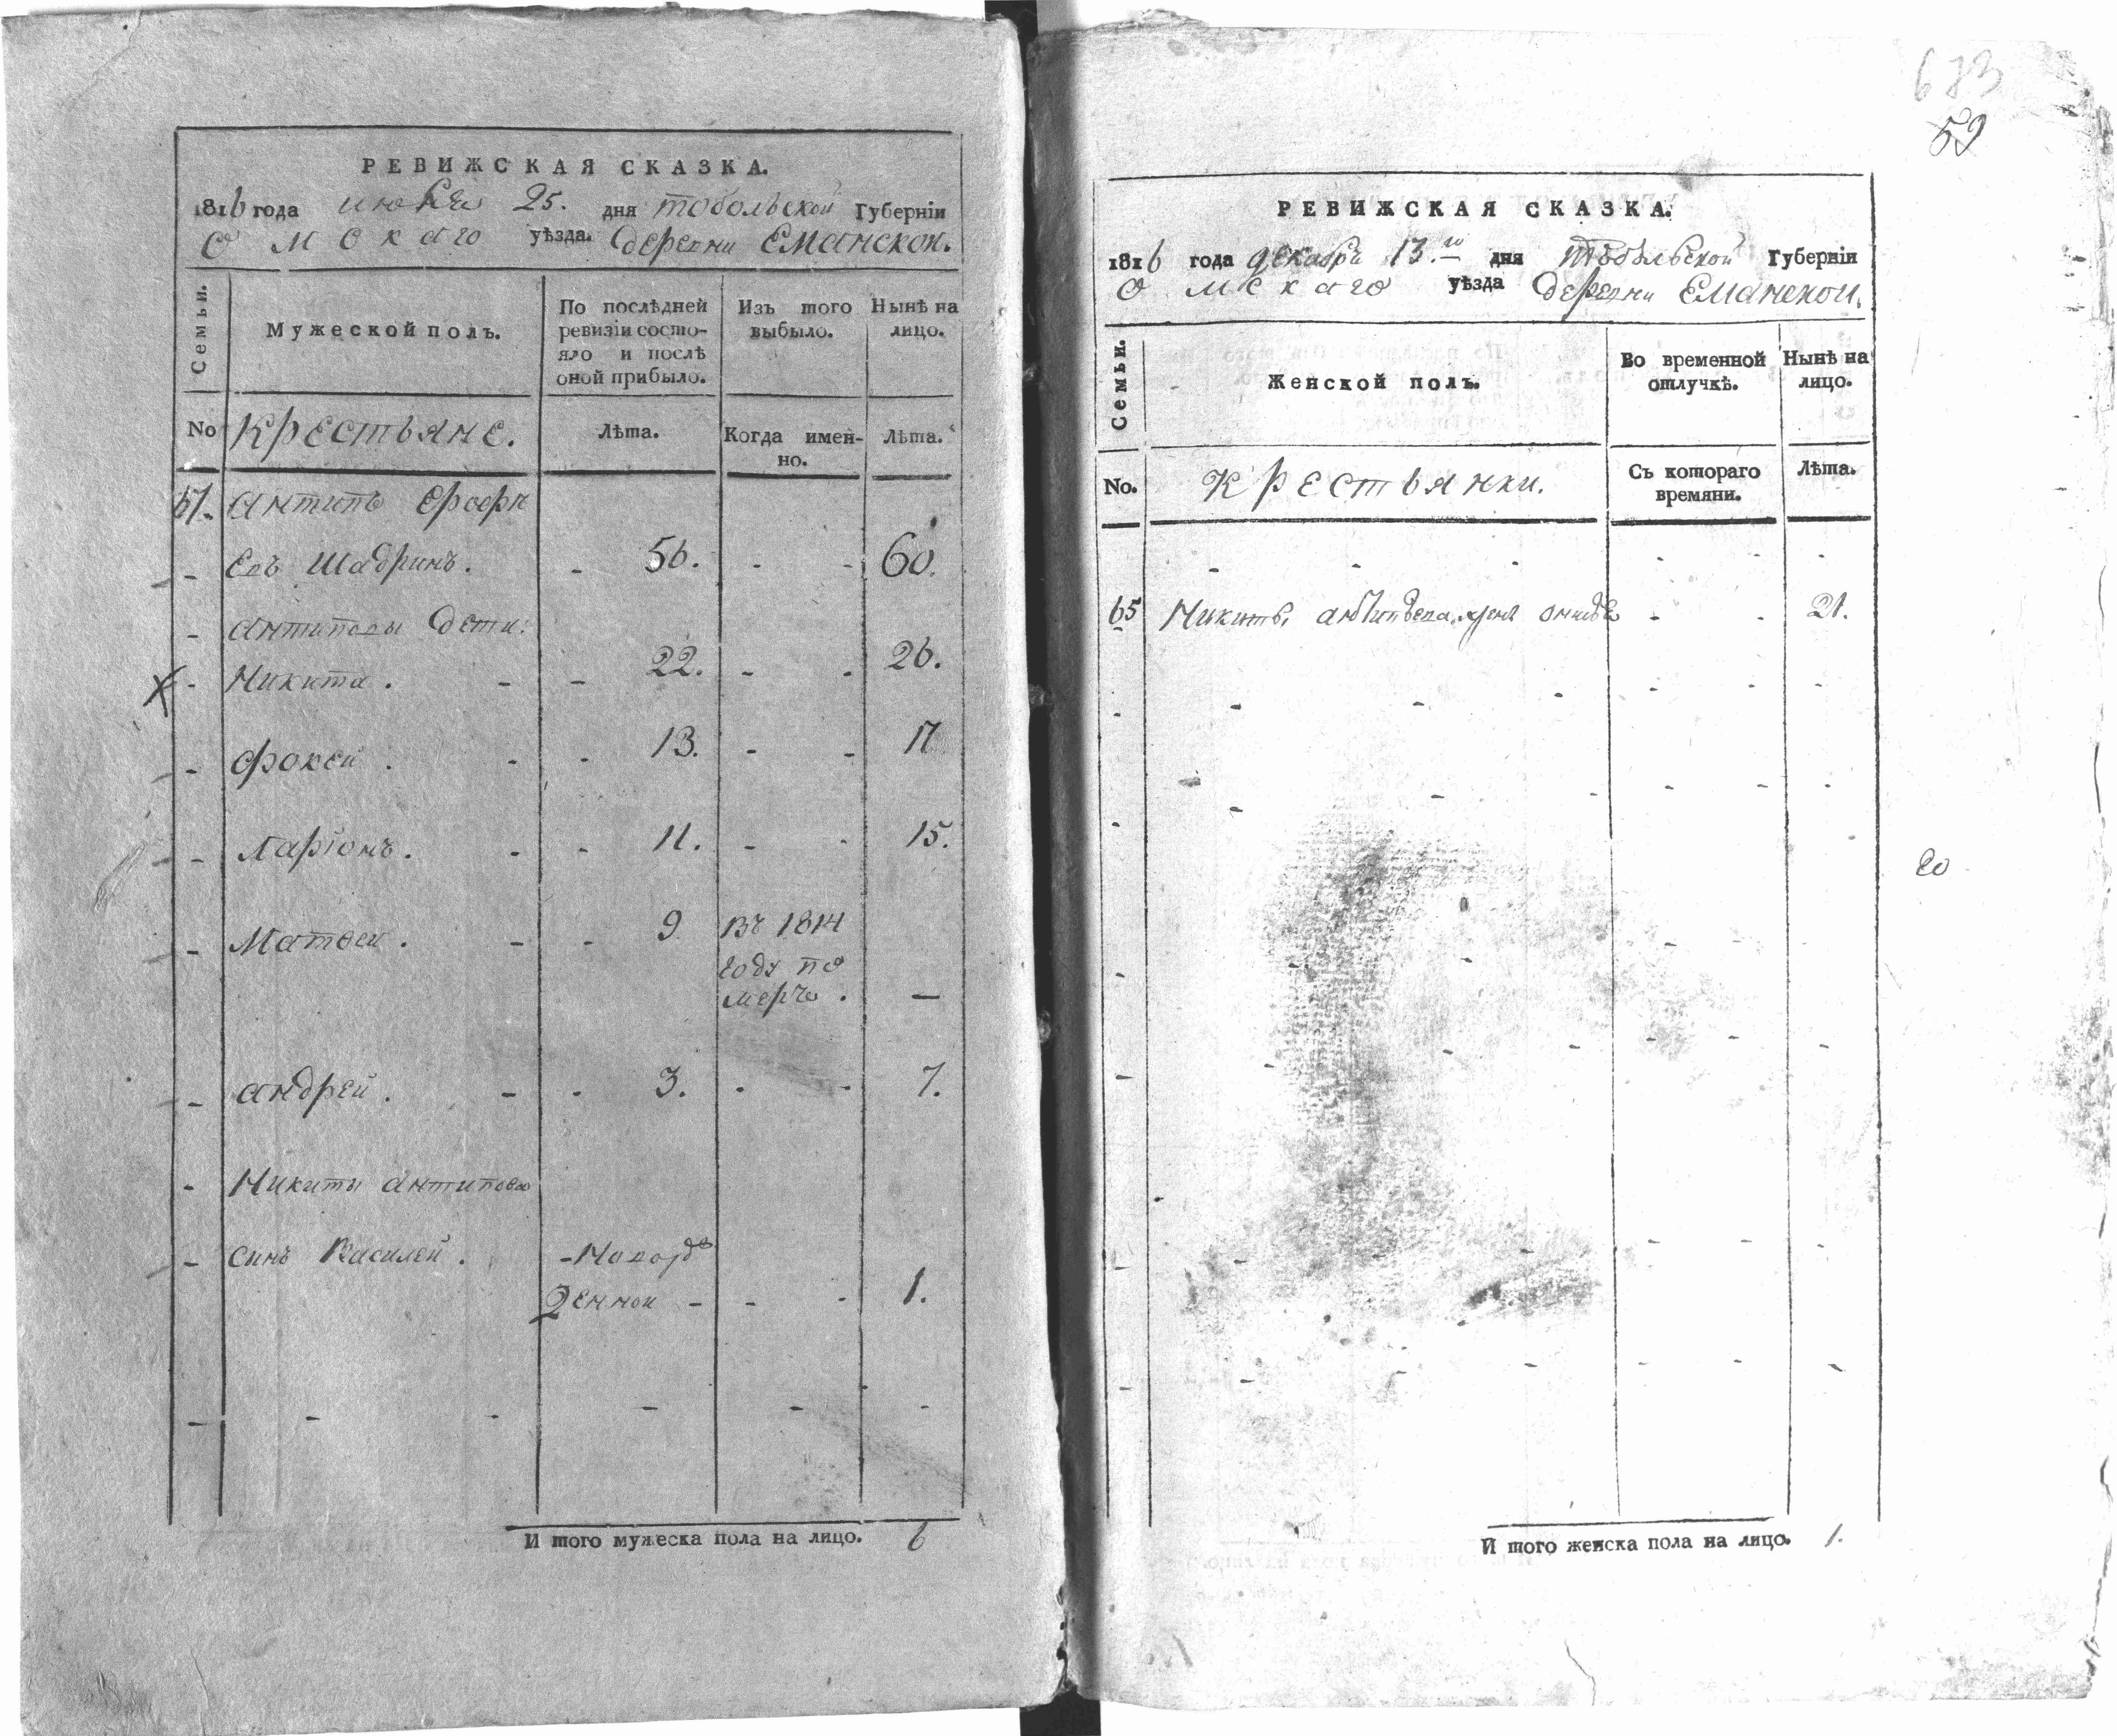 РЕВИЖСКАЯ СКАЗКА.
1816 года июля 25. дня тобольской Губерніи
Омскаго уѣзда. деревни Еманской.
Семьи.
Мужеской полъ.
По послѣдней ревизіи состо-
яло и послѣ оной прибыло.
Изъ того выбыло.
Нынѣ на лицо.
No
Крестьяне.
Лѣта.
Когда имен-
но.
Лѣта.
67. Антипъ Ерофе
евъ Шадринъ. - 56. - - 60.
- Антиповы дети:
- Никита. - - 22. - - 26.
- Фокей. - - 13. - - 17
- Ларіонъ. - - 11. - - 15.
- Матвей. - - 9 въ 1814
году по
меръ. —
- Андрей. - - 3. - - 7.
- Никиты Антипова
- сынъ Василей. - Новорож
денной - - - 1.
И того мужеска пола на лицо. 6
673
59
РЕВИЖСКАЯ СКАЗКА.
1816 года декабря 13.го дня Тобольской Губерніи
Омскаго уѣзда деревни Еманской.
Семьи.
Женской полъ.
Во временной отлучкѣ.
Нынѣ на лицо.
No.
Крестьянки.
Съ котораго
времяни.
Лѣта.
65 Никиты Антипьева жена - - 21.
20
И того женска пола на лицо. 1.